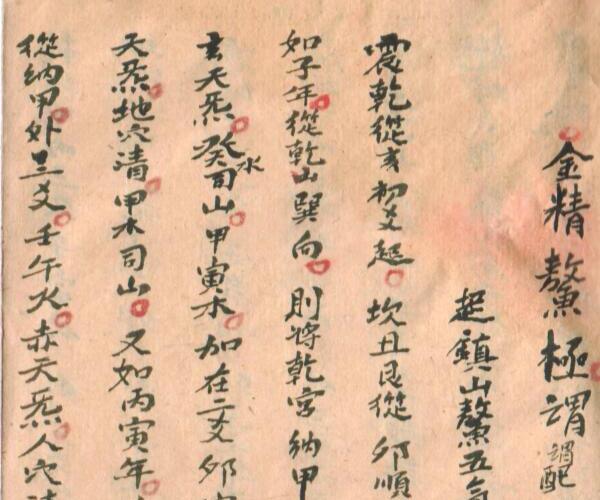 金精鰲極謂謂配
起鎮山鰲五
震乾從亥初爻起坎丑艮從卯順
如子年從乾山巽向則將乾宮納甲
玄天炁癸水司山甲寅木加在二爻卯
天炁地穴清甲木司山又如丙寅年
從納甲外三爻壬午火赤天炁人穴清